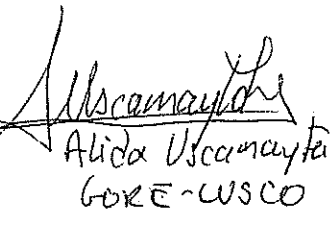 Uscamayta
Alida Uscamayta
GORE-CUSCO